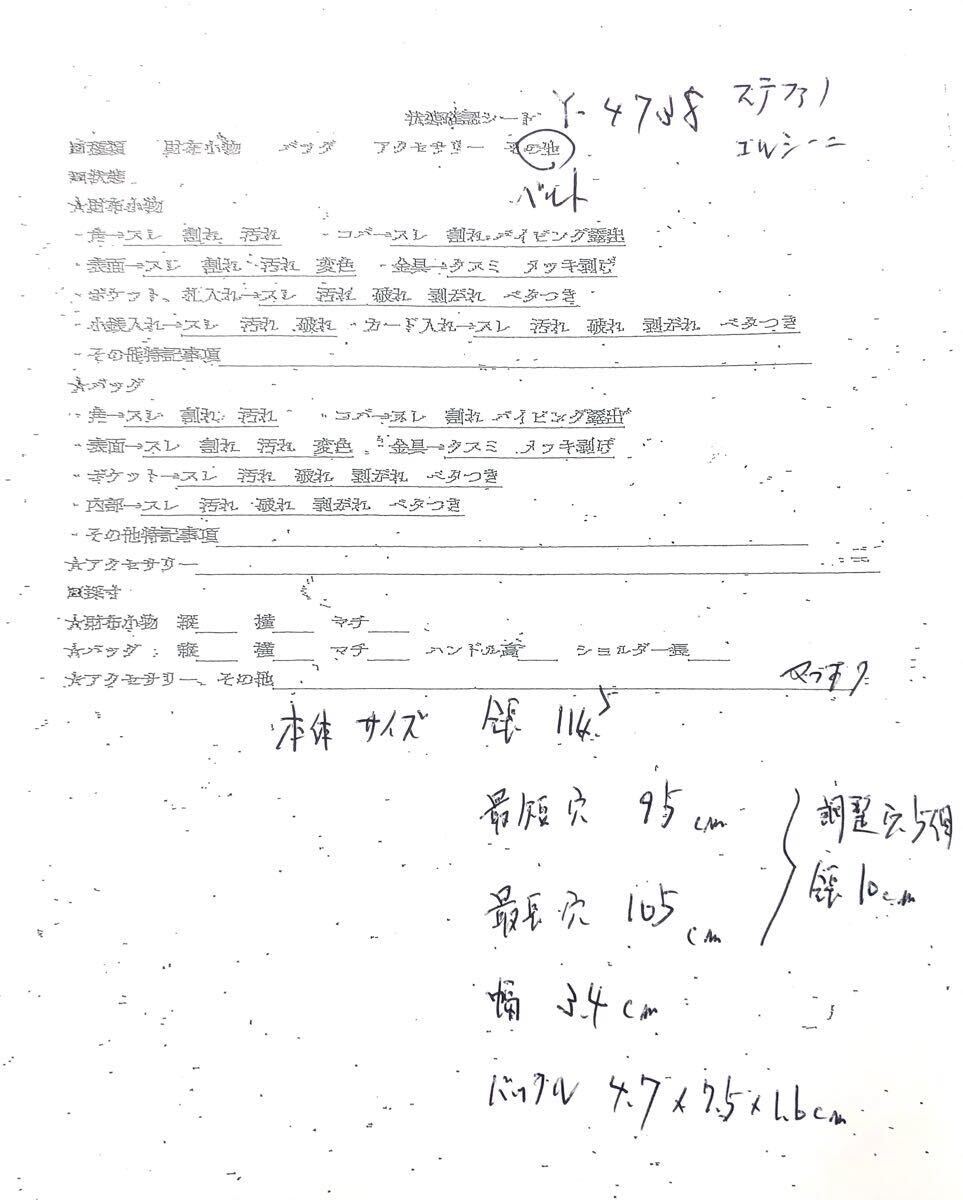 状態確認シート Y-4738 ステファノ
エルシーニ
□種類 財布小物 バッグ アクセサリー その他
ベルト
□状態
☆財布小物
・角→スレ 割れ 汚れ ・コバ→スレ 割れ パイピング露出
・表面→スレ 割れ 汚れ 変色 ・金具→クスミ メッキ剥げ
・ポケット、札入れ→スレ 汚れ 破れ 剥がれ ベタつき
・小銭入れ→スレ 汚れ 破れ ・カード入れ→スレ 汚れ 破れ 剥がれ ベタつき
・その他特記事項
☆バッグ
・角→スレ 割れ 汚れ ・コバ→スレ 割れ パイピング露出
・表面→スレ 割れ 汚れ 変色 ・金具→クスミ メッキ剥げ
・ポケット→スレ 汚れ 破れ 剥がれ ベタつき
・内部→スレ 汚れ 破れ 剥がれ ベタつき
・その他特記事項
☆アクセサリー
□採寸
☆財布小物 縦 横 マチ
☆バッグ: 縦 横 マチ ハンドル高 ショルダー長
☆アクセサリー、その他
本体サイズ 全長 114.5
最短穴 95cm
最長穴 105cm
調整穴5個
全長10cm
幅 3.4cm
バックル 4.7×7.5×1.6cm